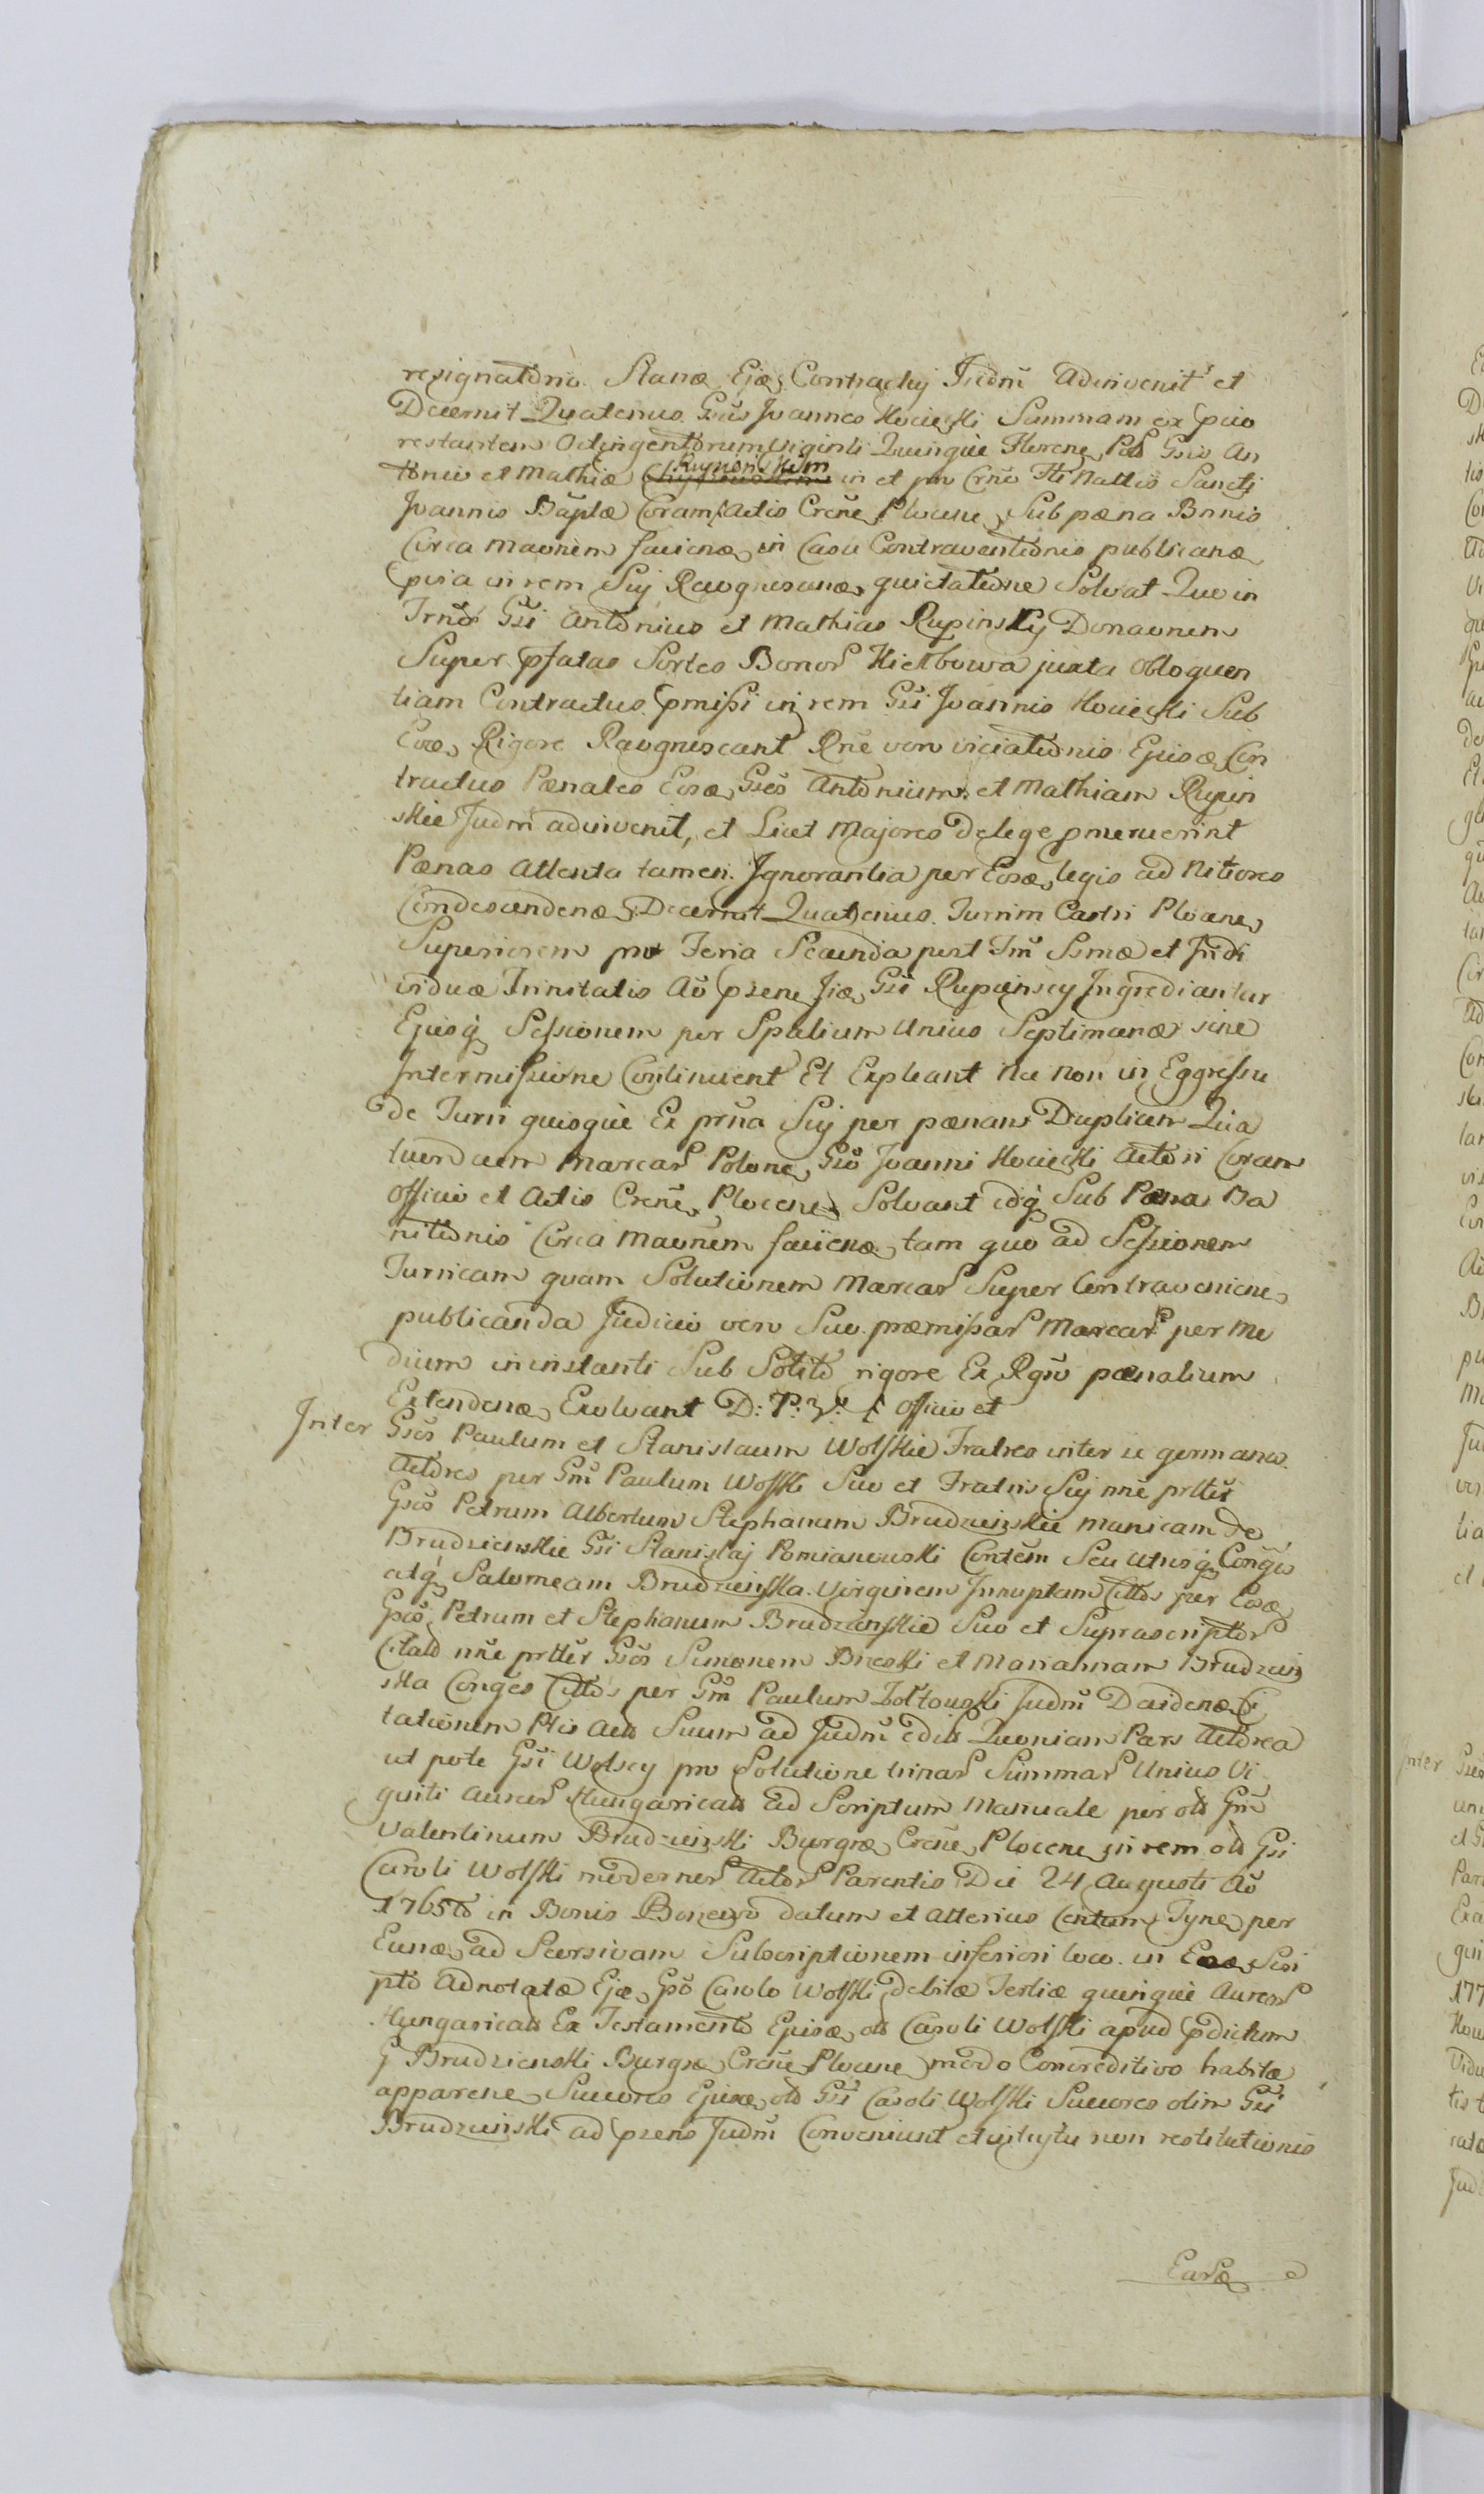 resignatoria Stanæ Ejæ Contractuj Judm̃ adinvenit et
Decernit Quatenus Gsus Joannes Kociecki Summam ex pcio
restantem Octingentorum Viginti Quinque Floreno Pol Gsis An
tonio et Mathiæ Rupinskim in et pro Crno Fti Nattis Sancti
Joannis Baptæ Coram Actis Crens Plocens Sub pæna Bnnis
Circa Maonem faciena in Casu Contraventionis publicanæ
psia in rem Suj Recognoscena quietatione Solvat Quo in
Trno Gsi Antonius et Mathias Rupinscÿ Donaonem
Super pfatas Sortes Bonor Kiełbowa juxta obloquen
tiam Contractus pmissi in rem Gsi Joannis Kociecki Sub
Eoæ Rigore Recognoscant Rne vero viciationis Ejusæ Con
tractus Pænales Eosæ Gsos Antonium et Mathiam Rupin
skie Judm adinvenit, et Licet Majores de lege pmeruerint
Pænas Attenta tamen Ignorantia per Eosæ legis ad Mitiores
Condescendenæ Decernit Quatenus Turrim Castri Plocens
Superiorem pro Feria Secunda post Fm̃ Ssmæ et Indi
viduæ Trinitatis Ao psene Jiæ Gsi Rupinscy Ingrediantur
Ejusq Sessionem per Spatium Unius Septimanæ sine
Intermissione Continuent Et Expleant Nec non in Eggressu
de Turri quisque Ex prna Suj per pænam Duplicem Qua
tuordecem Marcar Polone Gso Joanni Kociecki Actori Coram
Officio et Actis Crens Plocens Solvant idq Sub Pæna Ba
nitionis Circa Maonem faciena tam quo ad Sessionem
Turricam quam Solutionem Marcar Super Contraveniens
publicanda Judicio vero Suo præmissar Marcar per Me
dium in instanti Sub Solito rigore Ex Rgro pænalium
Extendenæ Exolvant D: P: V: Officio et
Inter Gsos Paulum et Stanislaum Wolskie Fratres inter se germanos
Actores per Gm̃ Paulum Wolski Suo et Fratris Suj nne prttes
Gsos Petrum Albertum Stephanum Brudzinskie Maricam de
Brudzinskie Gsi Stanislaj Pomianowski Contem Seu Utrosq Conges
atq Salomeam Brudzinska Virginem Innuptam Cittos per Eosæ
Gsos Petrum et Stephanum Brudzinskie Suo et Suprascriptor
Citato nne prttes Gsos Simonem Brzeski et Mariannam Brudzin
ska Conges Cittos per Gm̃ Paulum Zołtowski Judm Daidenæ Ci
tationem Ptis Acts Suum ad Judm edit Quoniam Pars Actorea
ut pote Gsi Wolscy pro Solutione binar Summar Unius Vi
ginti Aureor Hungaricals ad Scriptum Manuale per ols Gm
Valentinum Brudzinski Burgræ Crens Plocens in rem ols Gsi
Caroli Wolski modernor Actor Parentis Die 24 Augusti Ao
1765to in Bonis Bonewo datum et Alterius Centum Tyne per
Eunæ ad Scersivam Subscriptionem inferiori loco in Eoæ Scri
pto Adnotatæ Ejæ Gso Carolo Wolski debitæ Tertiæ quinque Aureor
Hungaricals Ex Testamento Ejusæ ols Caroli Wolski apud pdictum
G Brudzienski Burgræ Crens Plocens modo Concreditivo habitæ
apparene Succores Ejusæ ols Gsi Caroli Wolski Succores olim Gsi
Brudzinski ad psens Judm Conveniunt et intuitu non restitutionis
Earæ